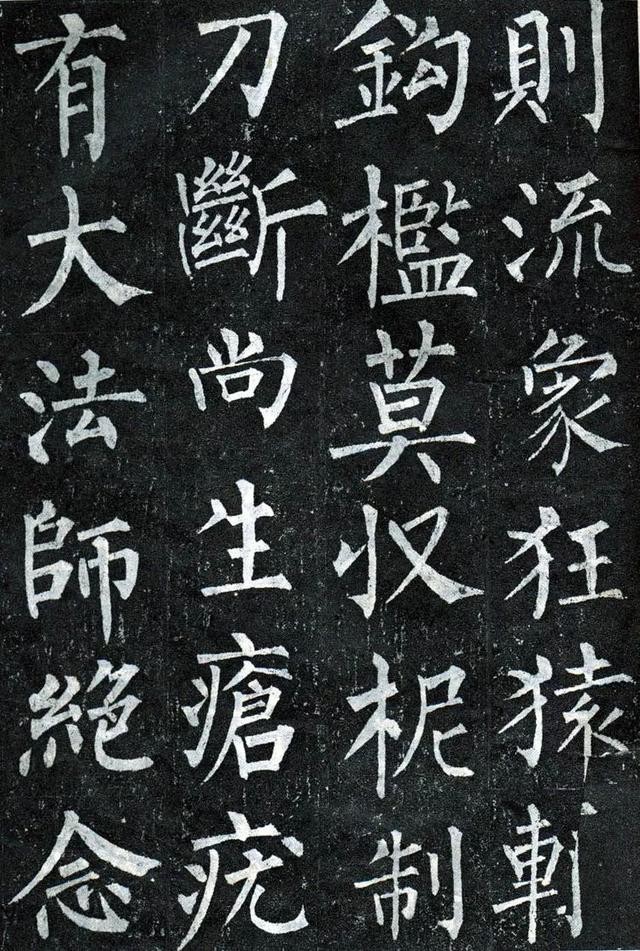 則流象狂猿輕
鈎檻莫収柅制
刀斷尚生瘡疣
有大法師絕念